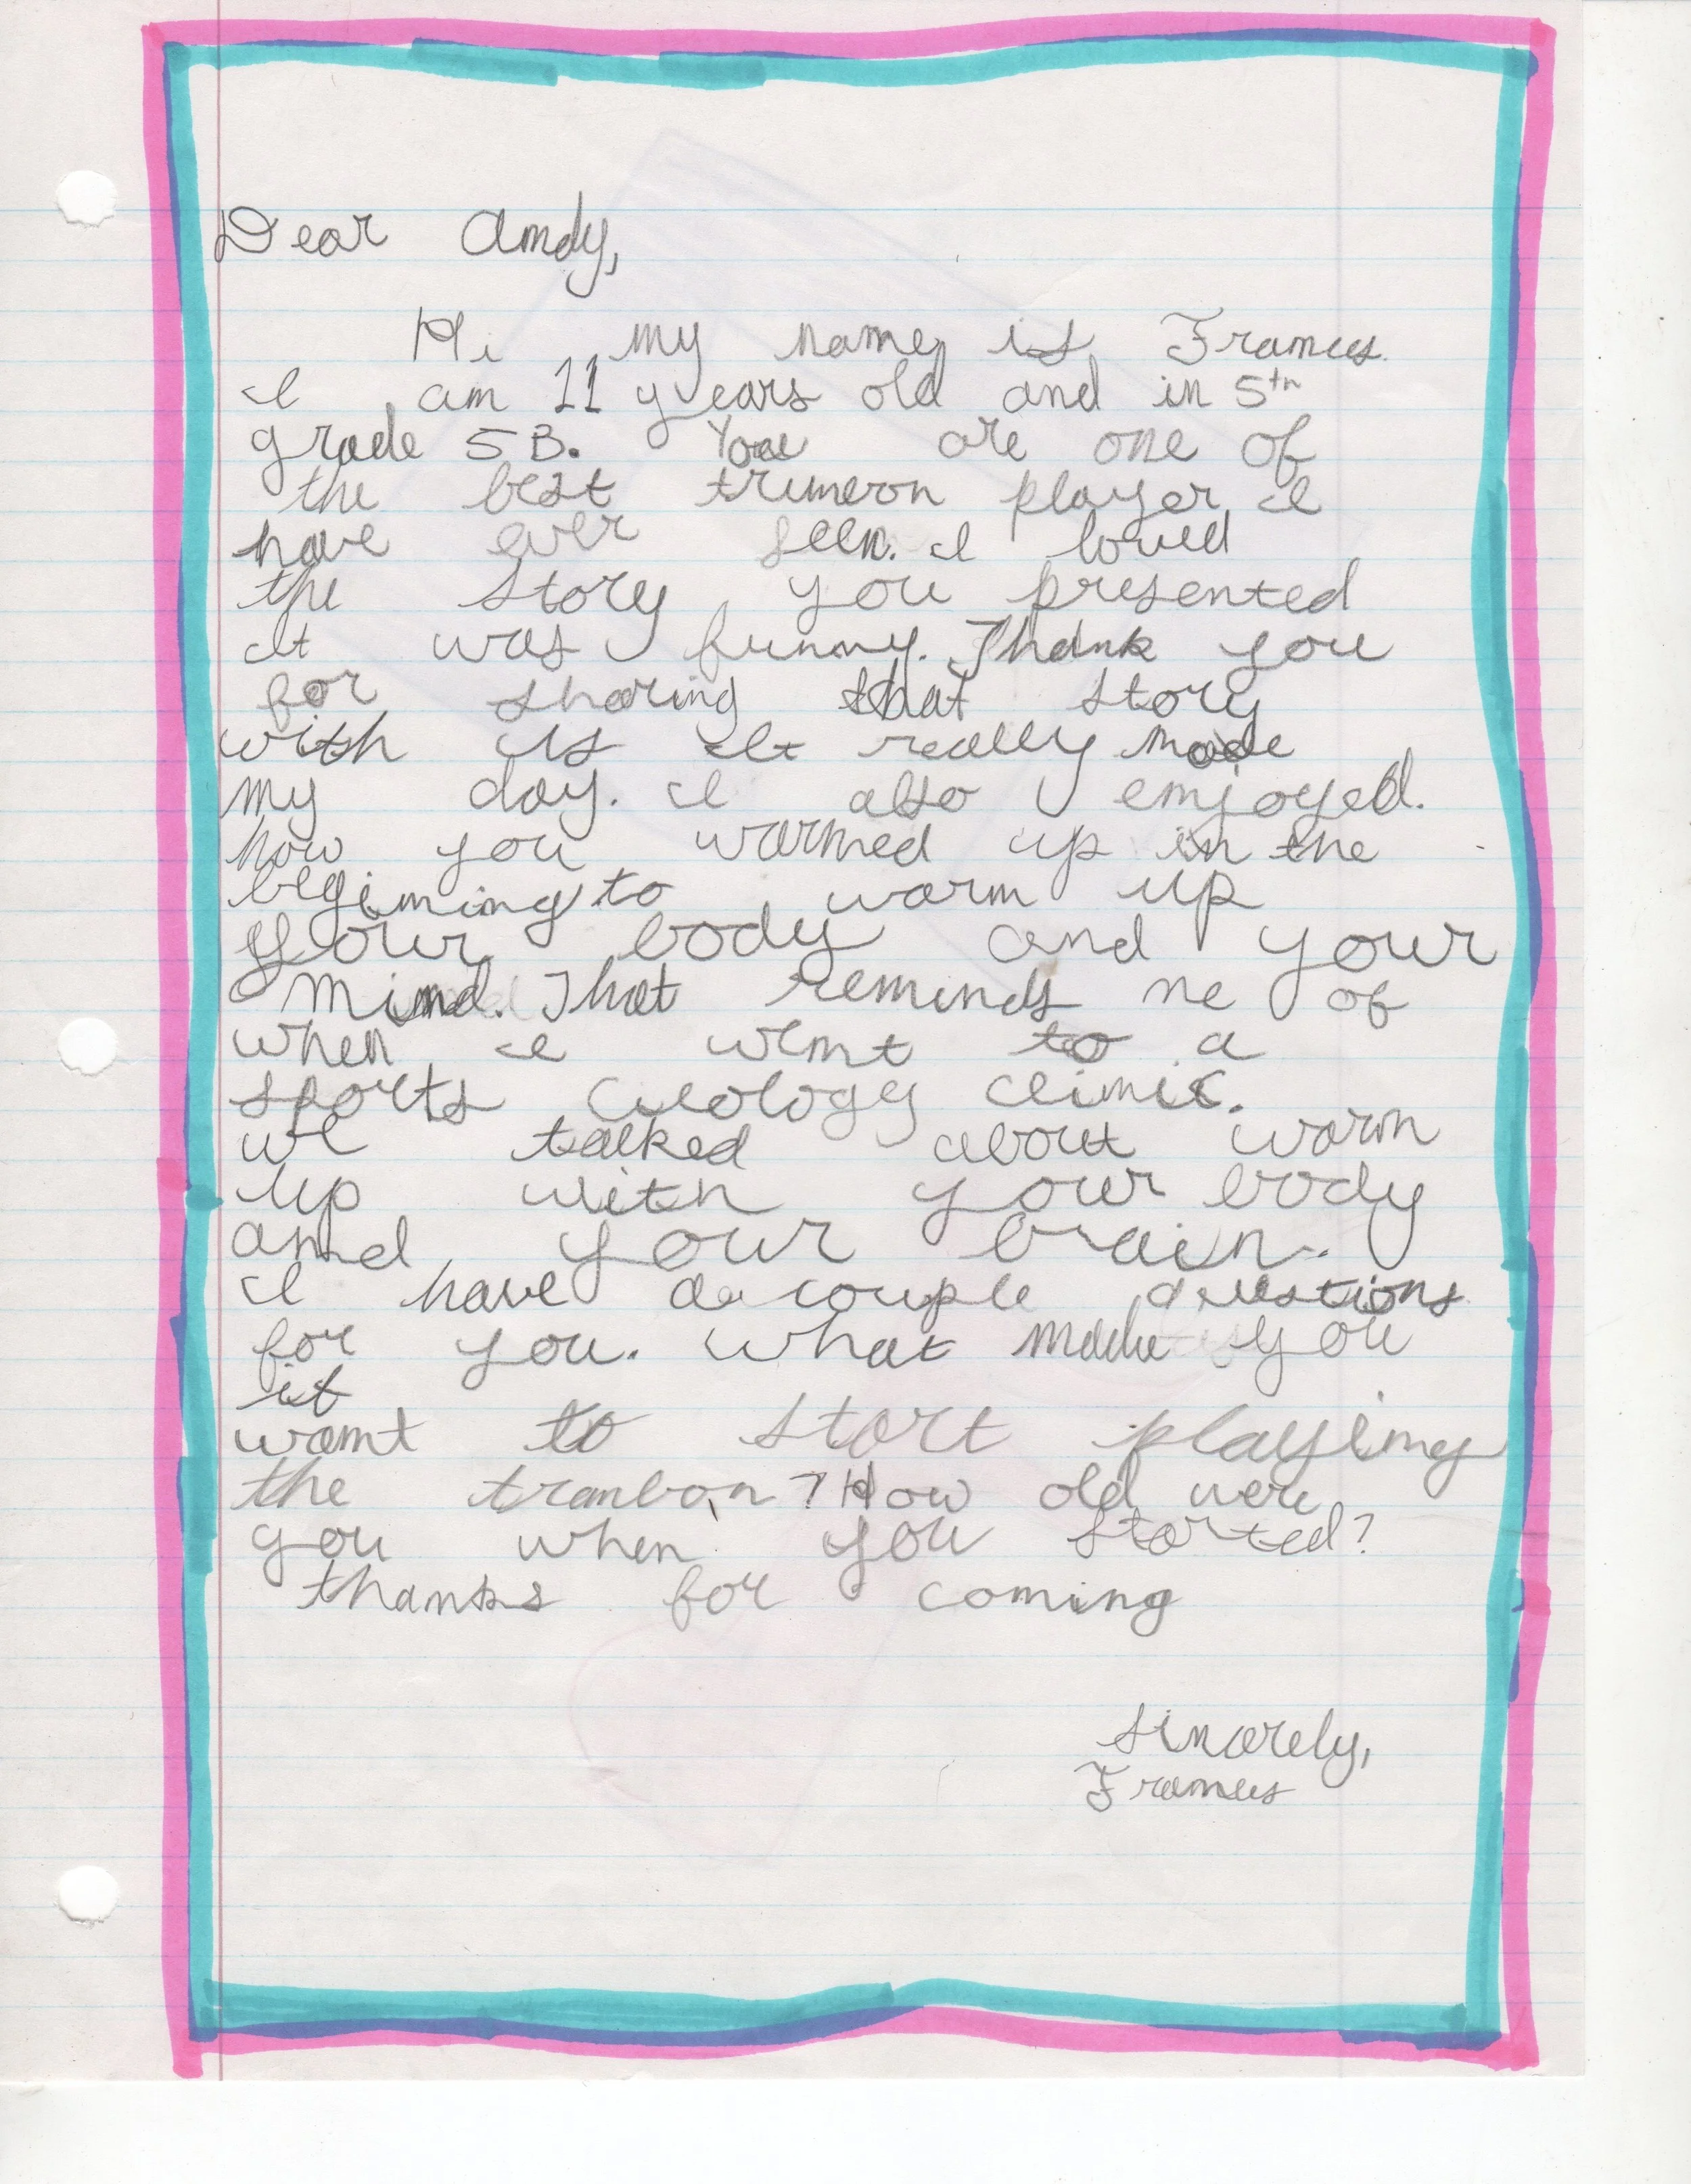 Dear Andy,
Hi my name is Frances.
I am 11 years old and in 5th
grade 5B. You are one of
the best trumeon player I
have ever seen. I loved
the story you presented
It was funny. Thank you
for sharing that story
with us It really made
my day. I also enjoyed.
how you warmed up in the
begiming to warm up
your body and your
mind. That reminds me of
when I went to a
sports cicology clinic.
we talked about warm
up with your body
and your brain.
I have a couple questions
for you. what made you
it
want to start playing
the trombon? How old were
you when you started?
thanks for coming
Sincerely,
Frances